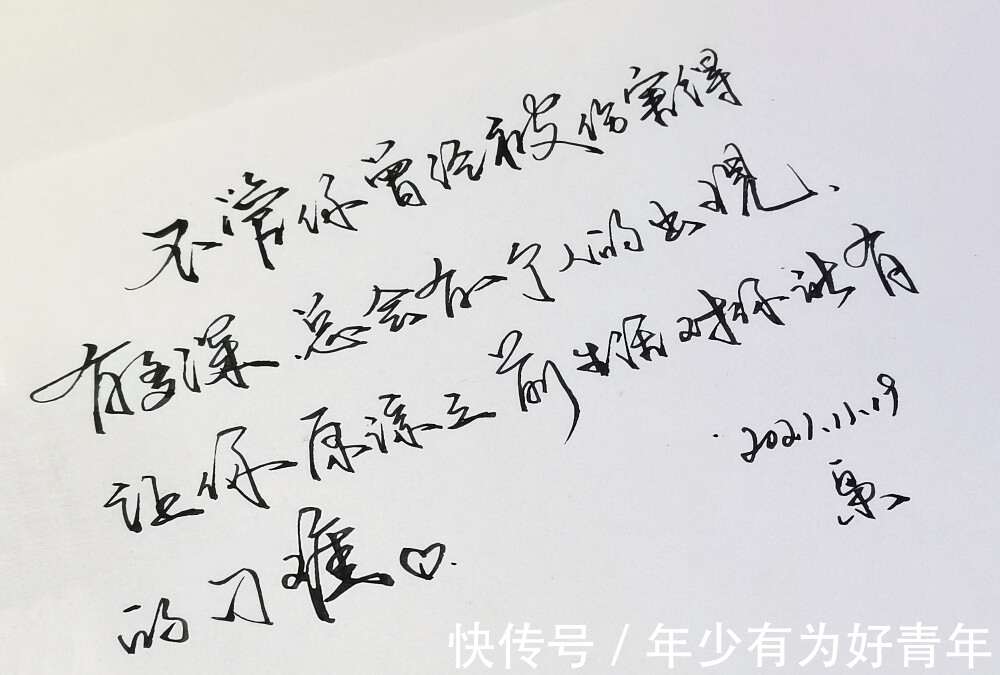 不管你曾经被伤害得
有多深.总会有一个人的出现.
让你原谅之前生活对你所有
的刁难♡.
2021.11.19
快传号/年少有为好青年